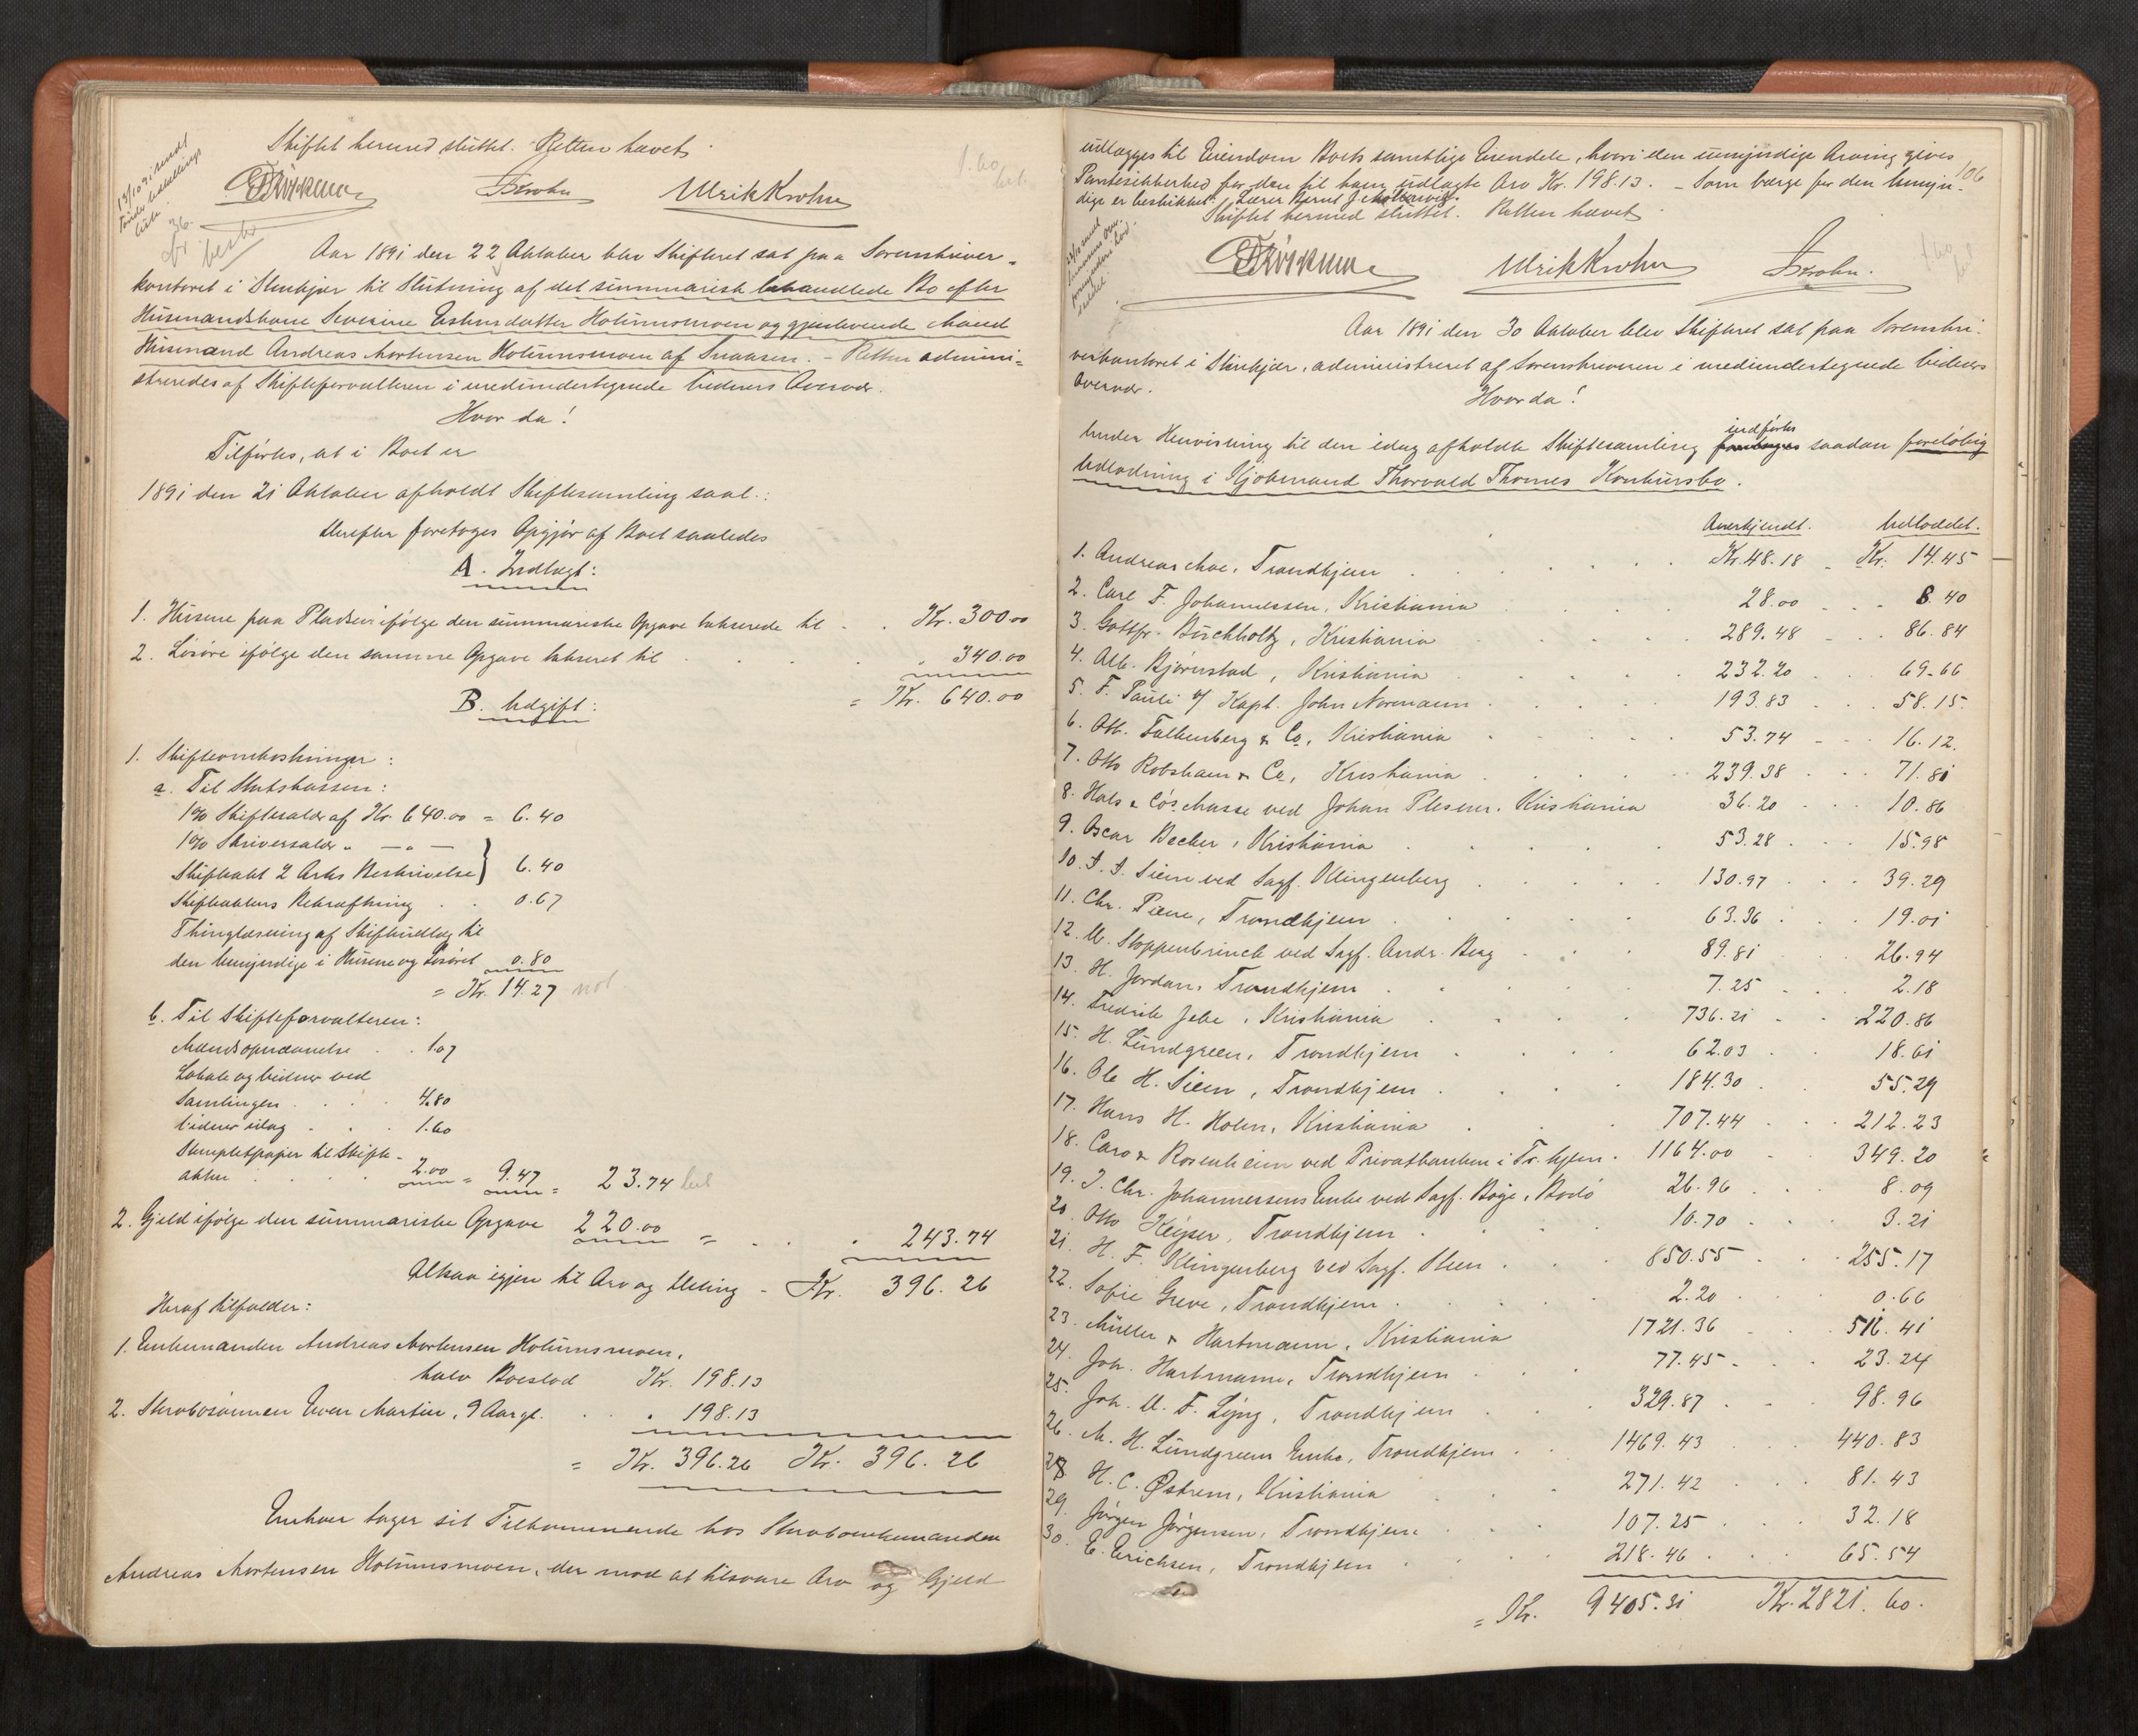 Skiftet hermed sluttet. Retten hævet.
Ulrik Krohn
Aar 1891 den 22 Oktober blev Skifteret sat paa Sorenskriver-
kontoret i Stenkjær til Slutning af det summarisk behandlede Bo efter
Husmandskone Severine Estensdatter Holumsmoen og gjenlevende Mand
Husmand Andreas Mortensen Holumsmoen af Snaasen. - Retten admini-
streredes af Skifteforvalteren i medundertegnede Vidners Overvær.
Hvor da!
Tilførtes, at i Boet er
1891 den 21 Oktober afholdt Skiftesamling saal.:
Derefter foretoges Opgjør af Boet saaledes
A. Indtægt:
1. Husene paa Pladsen ifølge den summariske Opgave takserede til . . Kr. 300.00
2. Løsøre ifølge den samme Opgave takseret til . . . 340.00
= Kr. 640.00
B. Udgift:
1. Skifteomkostninger:
a. Til Statskassen:
1% Skiftesalær af Kr. 640.00 = 6.40
1% Skriversalær " — " —
Skifteakt 2 Arks Beskrivelse } 6.40
Skifteaktens Bekræftning . . 0.67
Thinglæsning af Skifteudlæg til
den Umyndige i Husene og Løsøret 0.80
= Kr. 14.27 not.
b. Til Skifteforvalteren:
Mændsopnævnelse . . 1.07
Lokale og Vidner ved
Samlingen . . . 4.80
Vidner idag . . . 1.60
Stempletpapir til Skifte-
akten . . . 2.00 = 9.47 = 23.74
2. Gjeld ifølge den summariske Opgave 220.00 = . . . 243.74
Altsaa igjen til Arv og Deling - Kr. 396.26
Heraf tilfalder:
1. Enkemanden Andreas Mortensen Holumsmoen,
halv Boeslod Kr. 198.13
2. Stervbosønnen Even Martin, 9 Aar gl. . . . 198.13
= Kr. 396.26 Kr. 396.26
Enhver tager sit Tilkommende hos Stervboenkemanden
Andreas Mortensen Holumsmoen, der mod at tilsvare Arv og Gjeld
106
udlægges til Eiendom Boets samtlige Eiendele, hvori den umyndige Arving gives
Pantesikkerhed for den til ham udlagte Arv Kr. 198.13. - Som Værge for den Umyn-
dige er beskikket Lærer Bernt J.
Skiftet hermed sluttet. Retten hævet
Ulrik Krohn
Aar 1891 den 30 Oktober blev Skifteret sat paa Sorenskri-
verkontoret i Stenkjær, administreret af Sorenskriveren i medundertegnede Vidners
Overvær.
Hvor da!
indførtes
Under Henvisning til den idag afholdte Skiftesamling foretoges saadan foreløbig
Udlodning i Kjøbmand Thorvald Thornes Konkursbo.
Anerkjendt. Udloddet.
1. Andreas Moe, Trondhjem . . . Kr. 48.18 - Kr. 14.45
2. Carl F. Johannessen, Kristiania 28.00 - - 8.40
3. Gottfr. Buchholtz, Kristiania 289.48 - . . 86.84
4. Alb. Bjørnstad, Kristiania . . . 232.20 . . . 69.66
5. F. Pauli v/ Kapt. John Normann . . . 193.83 . . . 58.15.
6. Ott. Falkenberg & Co, Kristiania . . . 53.74 - - . 16.12.
7. Otto Robsham & Co, Kristiania . . . 239.38 . . . 71.81
8. Hals & Co's Masse ved Johan Plesner, Kristiania 36.20 . . . 10.86
9. Oscar Becker, Kristiania . . . 53.28 . . . 15.98
10. J. J. Siem ved Sagf. Klingenberg . . . 130.97 . . . 39.29
11. Chr. Piene, Trondhjem . . . 63.36 . . . 19.01
12. U. Stoppenbrinck ved Sagf. Andr. Berg . . . 89.81 . 26.94
13. H. Jordan, Trondhjem . . . 7.25 . . . 2.18
14. Fredrik Jebe, Kristiania . . . 736.21 - . . 220.86
15. H. Lundgreen, Trondhjem . . . 62.03 . . 18.61
16. Ole H. Siem, Trondhjem . . . 184.30 . . 55.29
17. Hans H. Holm, Kristiania . . 707.44 . . . 212.23
18. Caro & Rosenheim ved Privatbanken i Tr.hjem . 1164.00 . . 349.20
19. J. Chr. Johannessens Enke ved Sagf. Bøge, Bodø 26.96 . . 8.09
20 Otto Keyser, Trondhjem . . . 10.70 . . . 3.21
21. H. F. Klingenberg ved Sagf. Steen . . . 850.55 . . . 255.17
22. Sofie Greve, Trondhjem . . . 2.20 . . 0.66
23. Müller & Hartmann, Kristiania 1721.36 - . 516.41
24. Joh. Hartmann, Trondhjem . . . 77.45 - . . 23.24
25. Joh. U. F. Lyng, Trondhjem . . . 329.87 . . . 98.96
26. M. H. Lundgreens Enke, Trondhjem . . 1469.43 . . . 440.83
28 H. C. Østrem, Kristiania . . 271.42 . . . 81.43
29. Jørgen Jørgensen, Trondhjem . . . 107.25 . . . 32.18
30. E. Erichsen, Trondhjem . . . 218.46 . . . 65.54
= Kr. 9405.31 Kr. 2821.60.